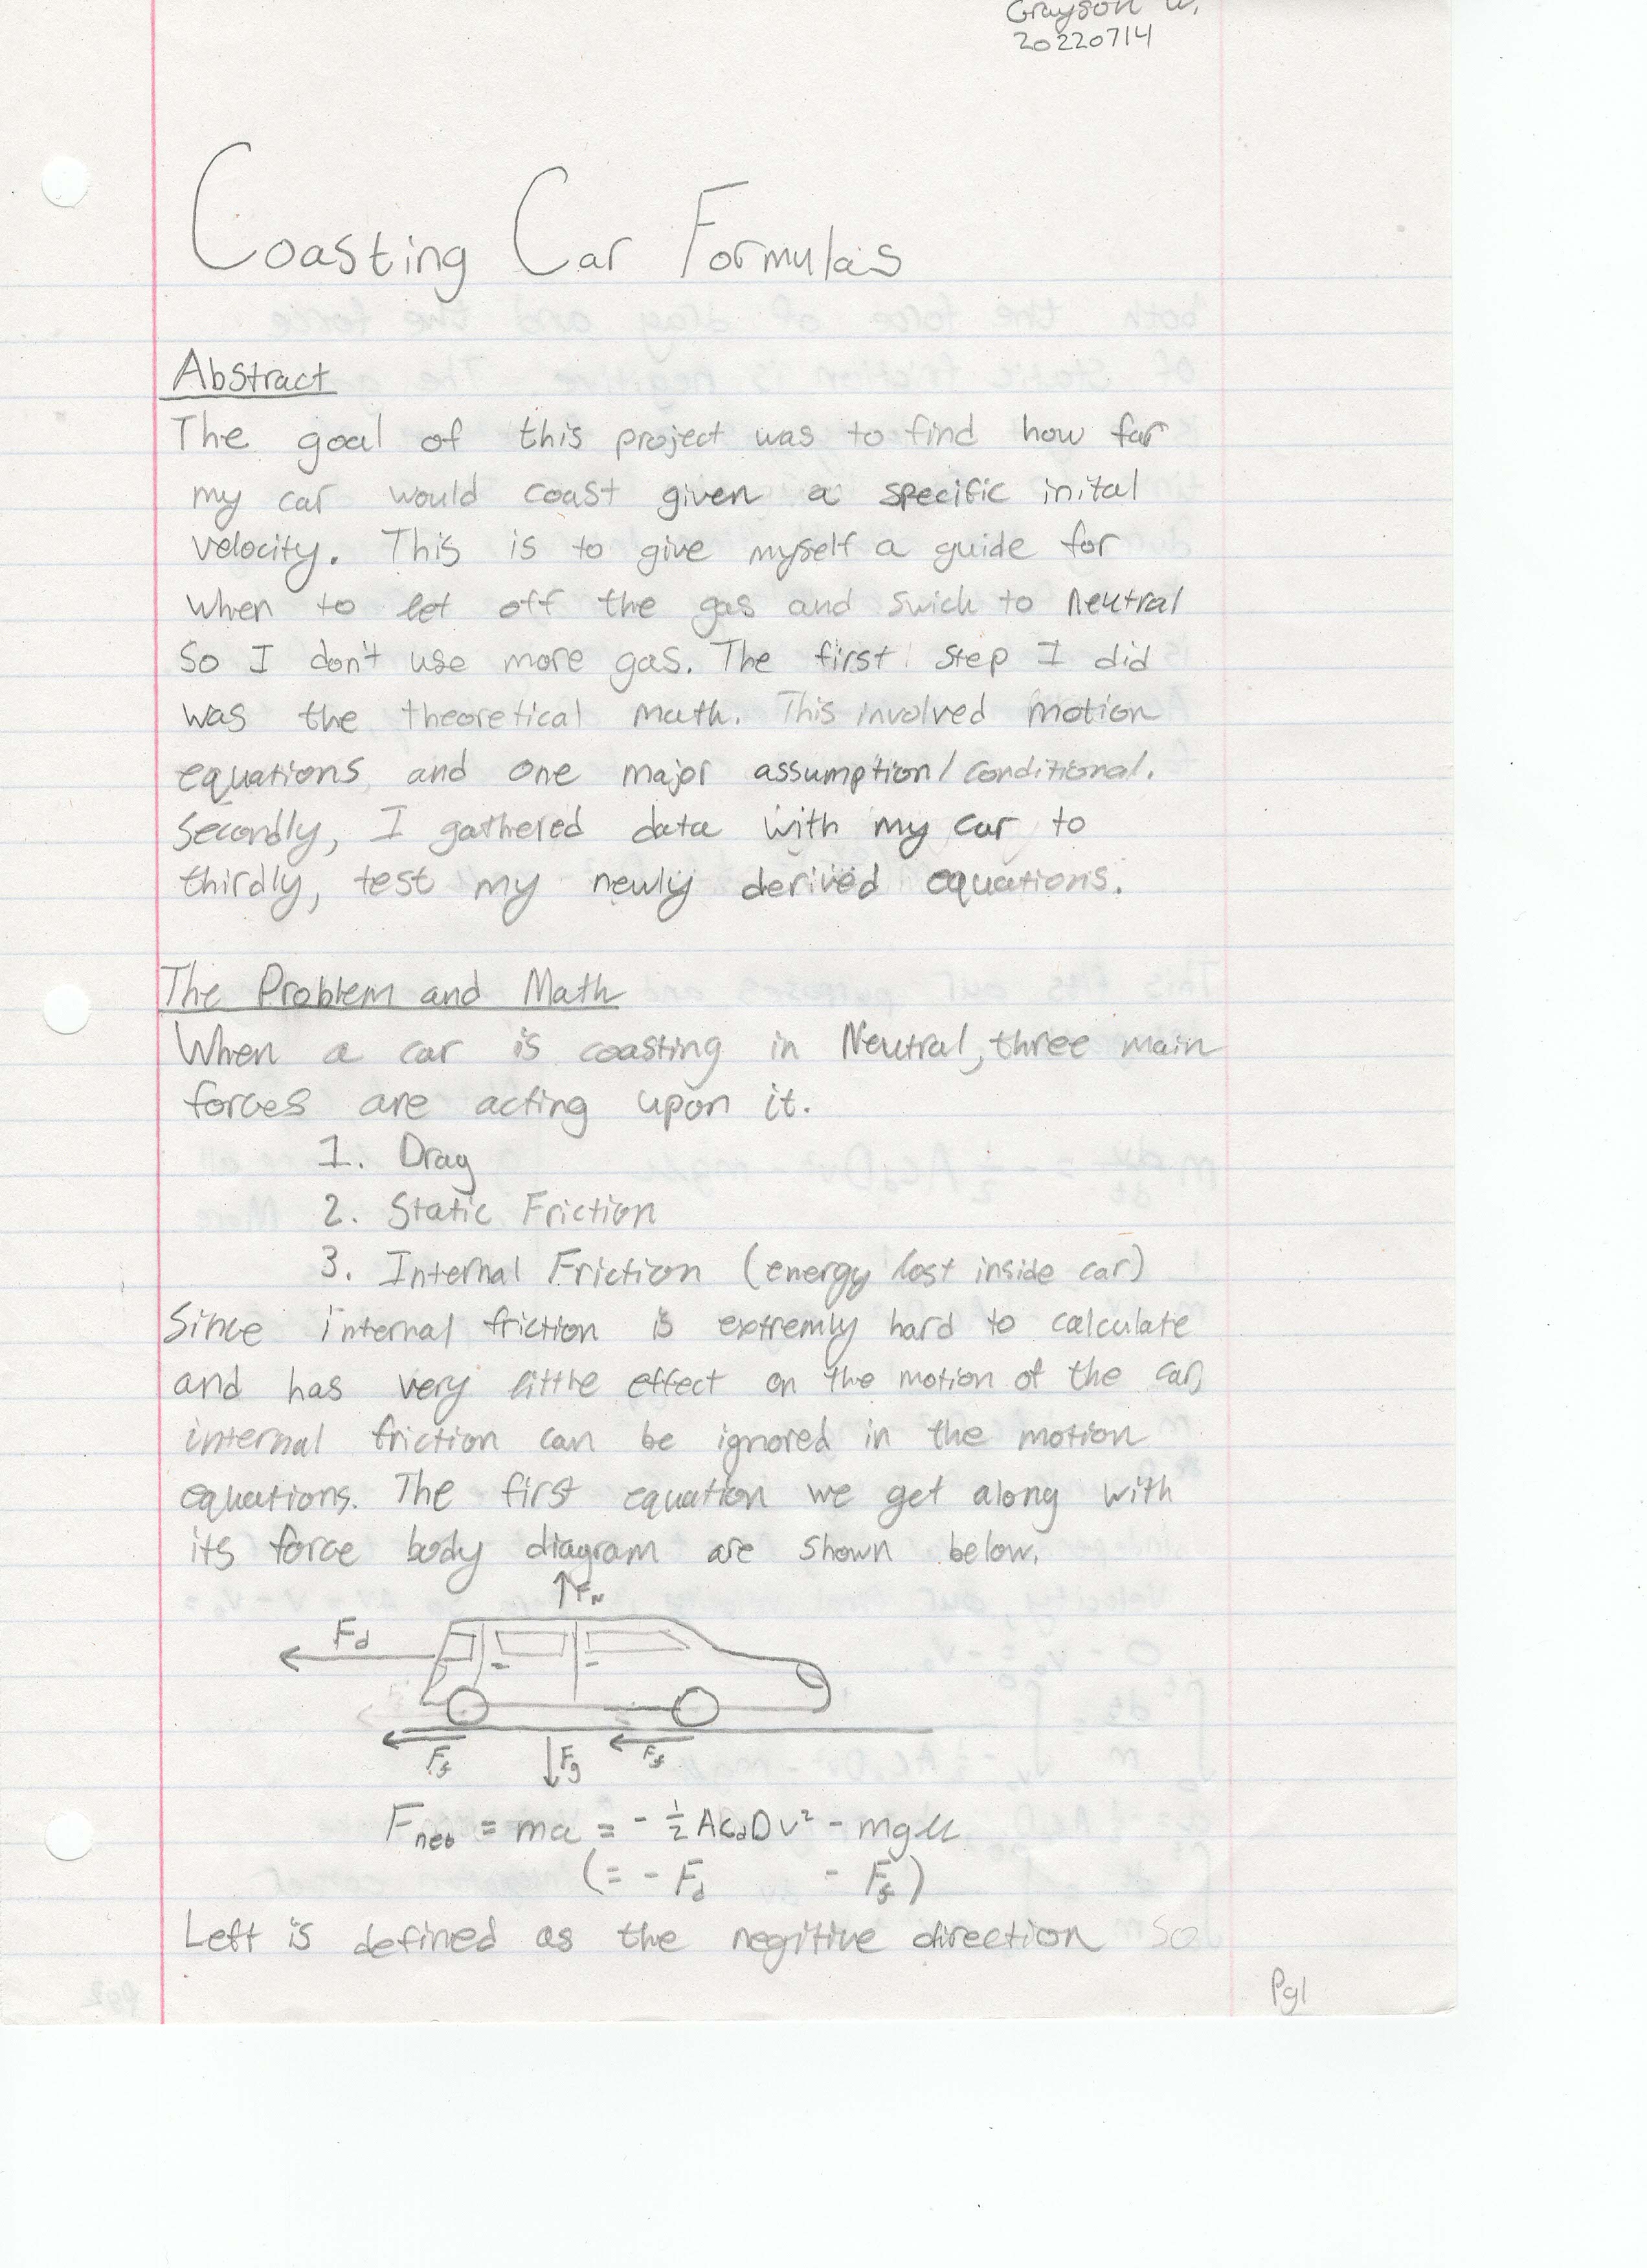 Grayson W.
20220714
Coasting Car Formulas
Abstract
The goal of this project was to find how far
my car would coast given a specific inital
velocity. This is to give myself a guide for
when to let off the gas and swich to Neutral
so I don't use more gas. The first step I did
was the theoretical math. This involved motion
equations and one major assumption/conditional.
Secondly, I gathered data with my car to
thirdly, test my newly derived equations.
The Problem and Math
When a car is coasting in Neutral, three main
forces are acting upon it.
1. Drag
2. Static Friction
3. Internal Friction (energy lost inside car)
Since internal friction is extremly hard to calculate
and has very little effect on the motion of the car,
internal friction can be ignored in the motion
equations. The first equation we get along with
its force body diagram are shown below.
↑F_N
F_d
F_f F_g F_f
F_net = ma = - 1/2 AC_dDv² - mgμ
(= - F_d - F_f)
Left is defined as the negitive direction so
Pg1